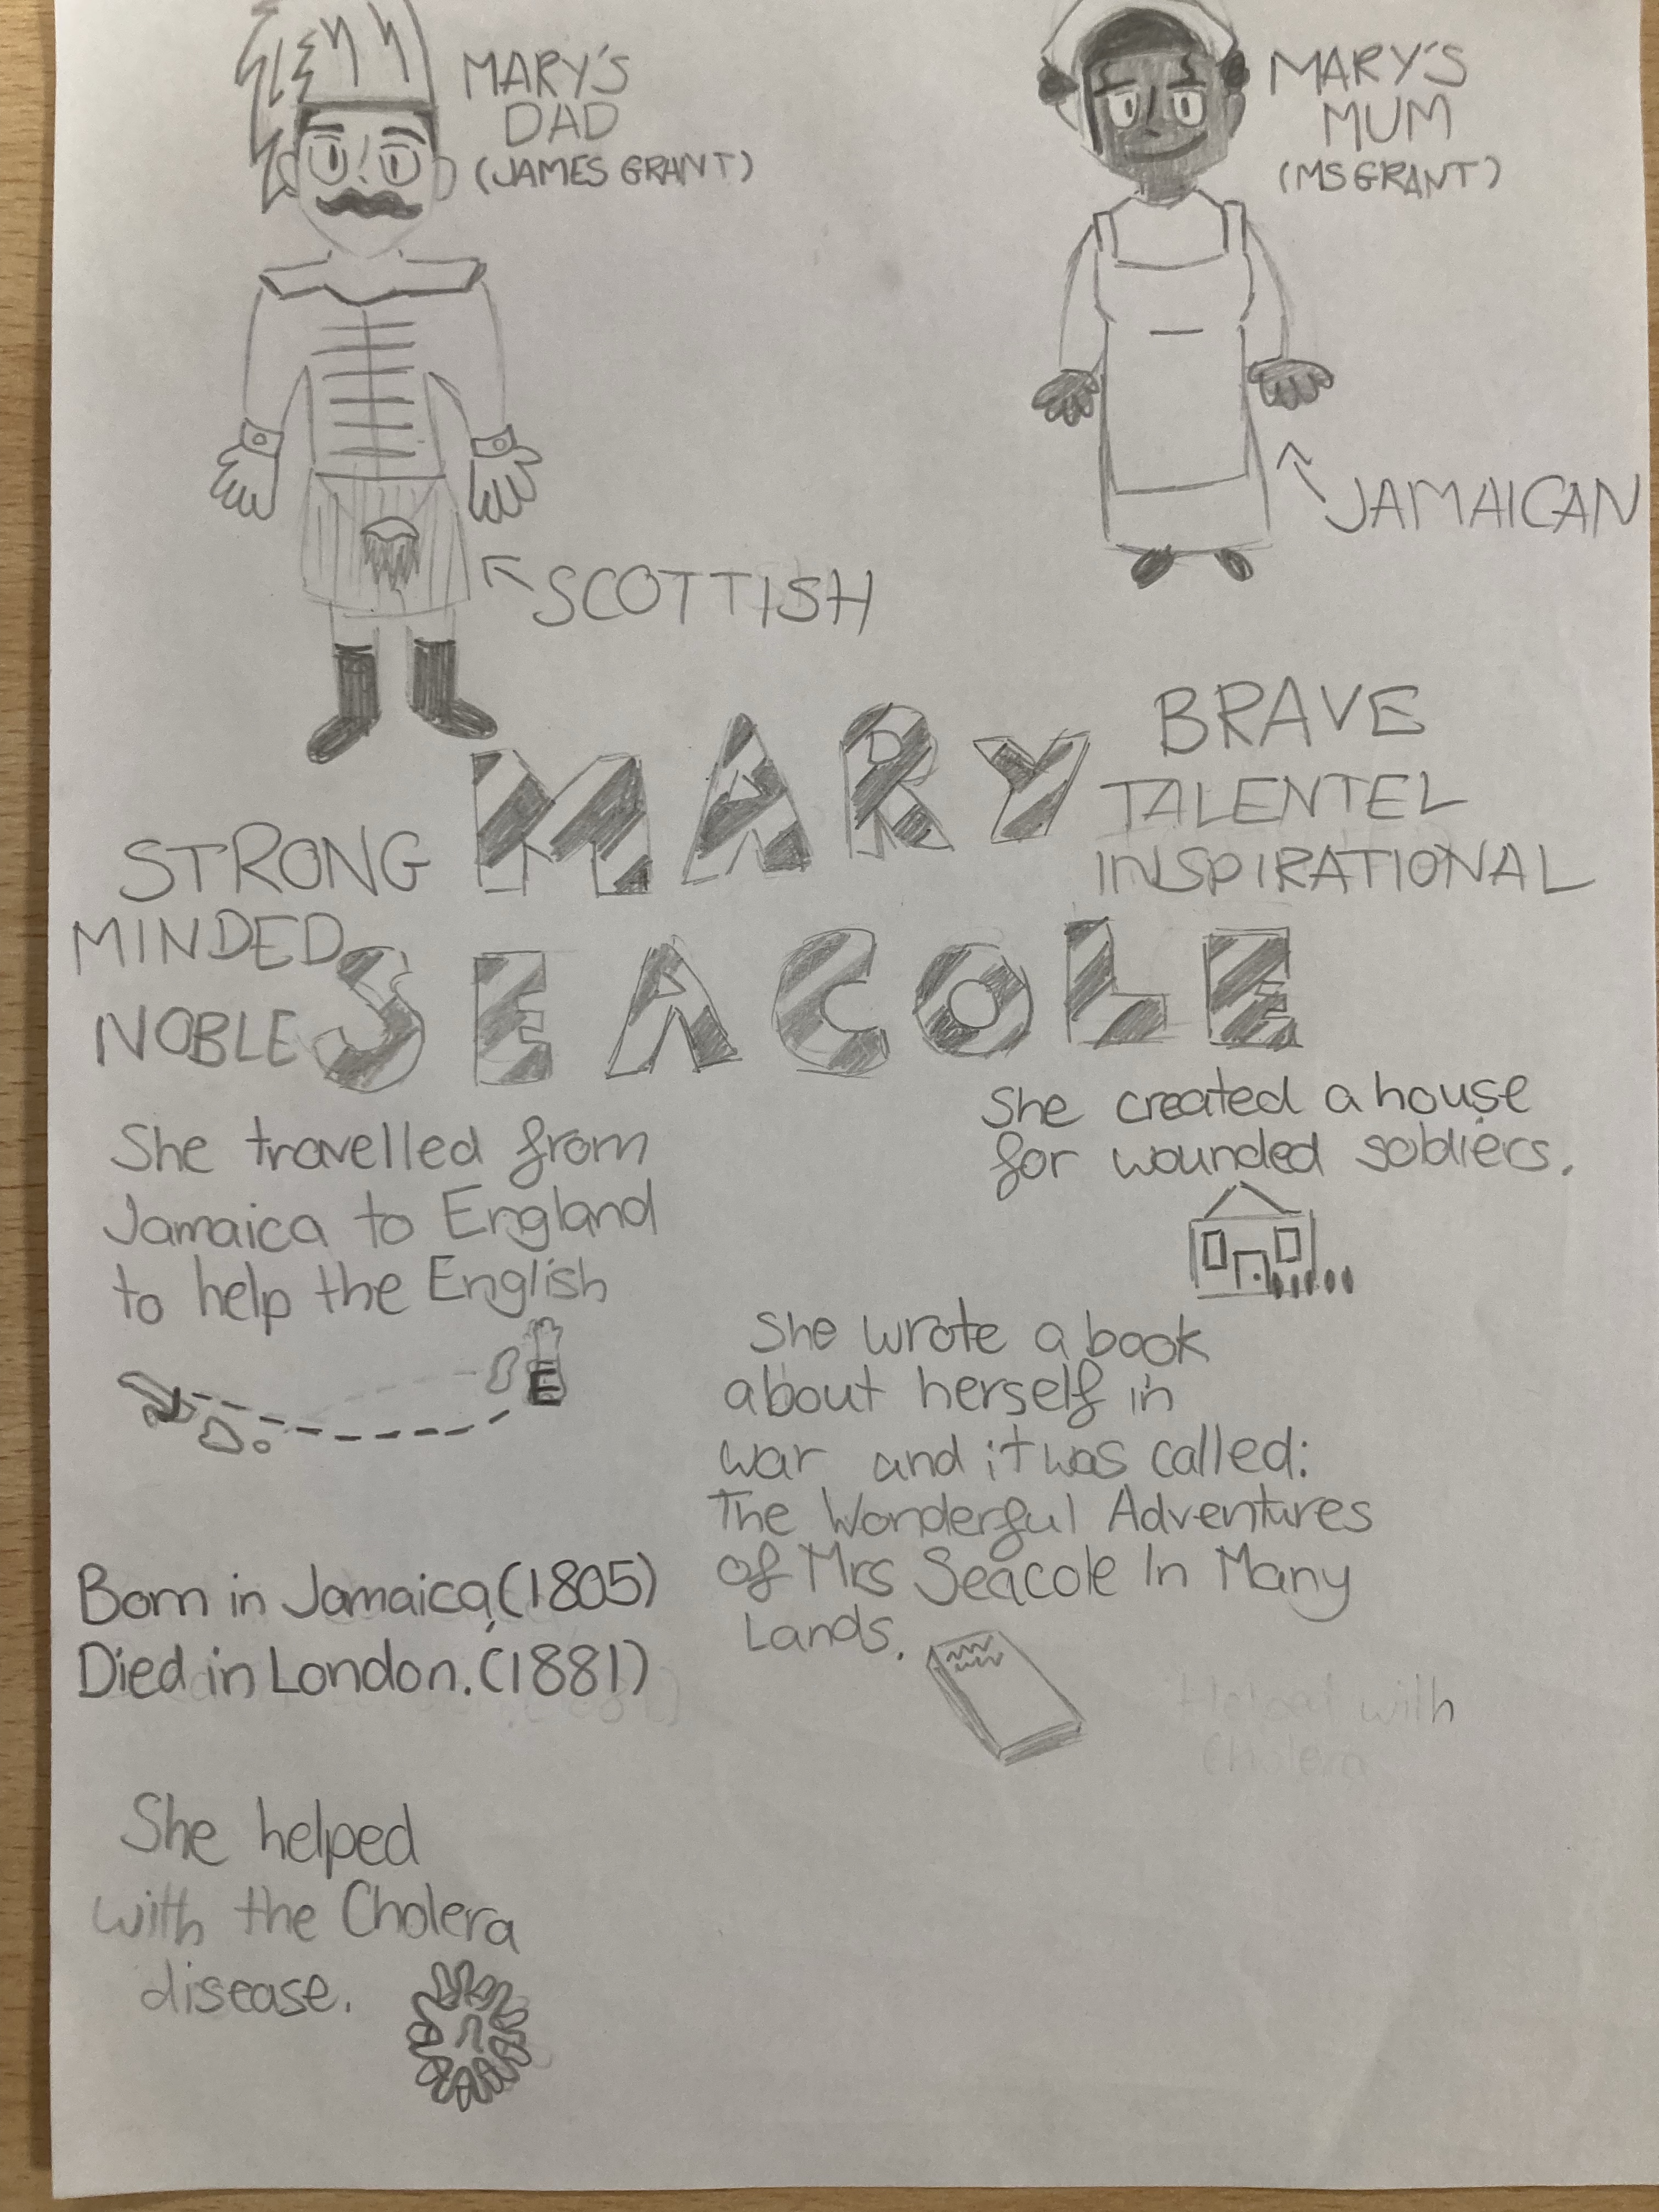 MARY'S
DAD
(JAMES GRANT)
MARY'S
MUM
(MS GRANT)
SCOTTISH
JAMAICAN
MARY
SEACOLE
STRONG
MINDED
NOBLE
BRAVE
TALENTEL
INSPIRATIONAL
She travelled from
Jamaica to England
to help the English
E
She created a house
for wounded soldiers.
She wrote a book
about herself in
war and it was called:
The Wonderful Adventures
of Mrs Seacole In Many
Lands.
Born in Jamaica,(1805)
Died in London.(1881)
with
Cholera
She helped
with the Cholera
disease.